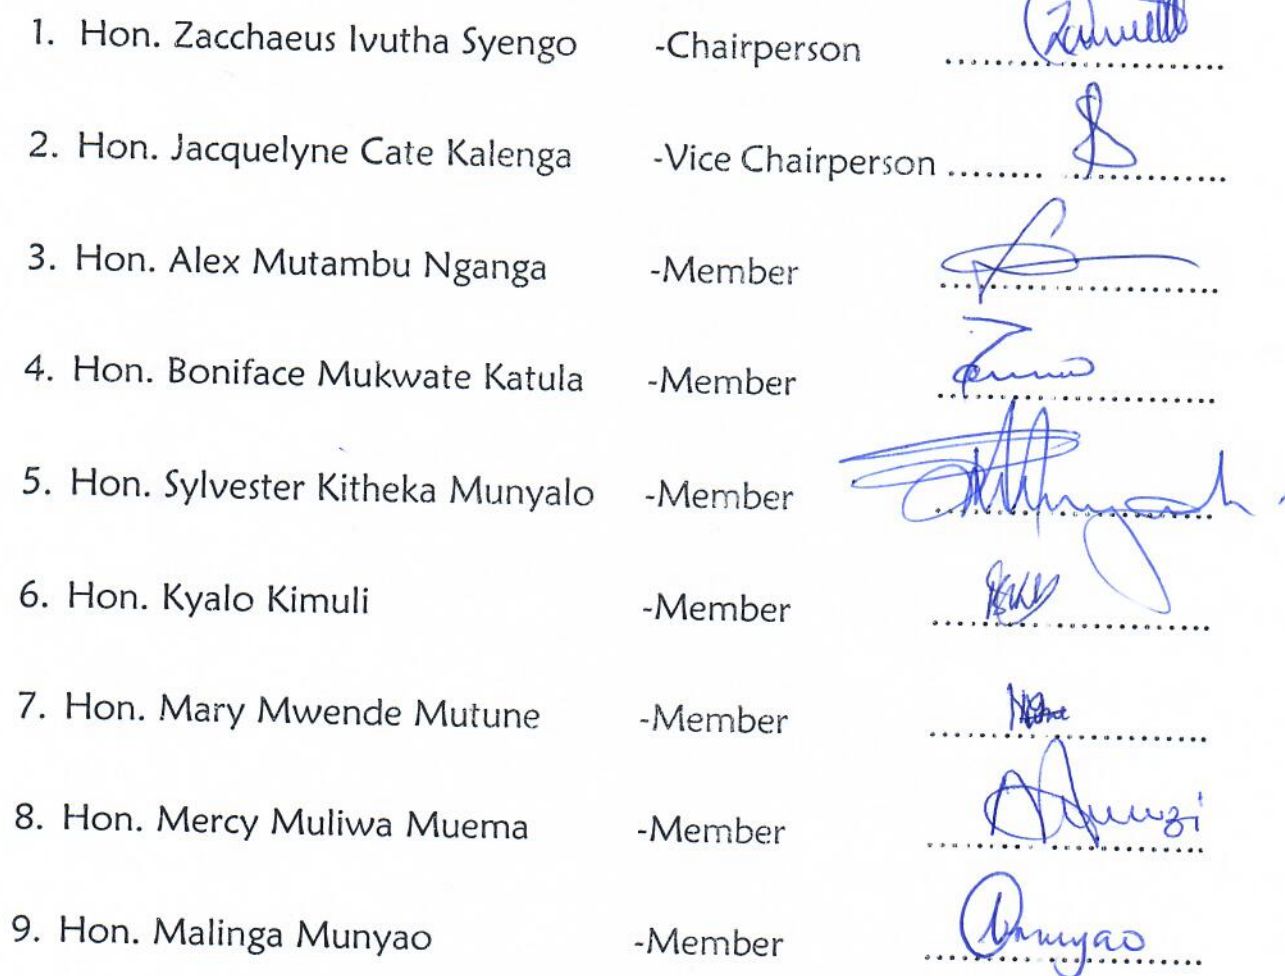 1. Hon. Zacchaeus Ivutha Syengo -Chairperson ........................
2. Hon. Jacquelyne Cate Kalenga -Vice Chairperson ........ .............
3. Hon. Alex Mutambu Nganga -Member ........................
4. Hon. Boniface Mukwate Katula -Member ........................
5. Hon. Sylvester Kitheka Munyalo -Member ........................
6. Hon. Kyalo Kimuli -Member ........................
7. Hon. Mary Mwende Mutune -Member ........................
8. Hon. Mercy Muliwa Muema -Member ........................
9. Hon. Malinga Munyao -Member ........................